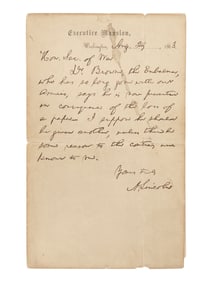 Executive Mansion,
Washington, Aug. , 1863.
Hon. Sec. of War
Dr. Brown, the Embalmer,
who has so long been with our
Armies, says he is now prevented
in consequence of the loss of
a paper. I suppose he should
be given another, unless there be
some reason to the contrary, un-
known to me.
Yours truly
A. Lincoln